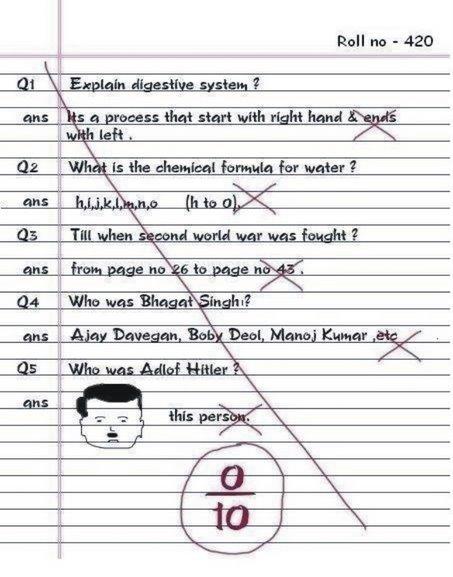 Roll no - 420
Q1 Explain digestive system ?
ans Its a process that start with right hand & ends
with left .
Q2 What is the chemical formula for water ?
ans h,i,j,k,l,m,n,o (h to o).
Q3 Till when second world war was fought ?
ans from page no 26 to page no 43 .
Q4 Who was Bhagat Singh ?
ans Ajay Davegan, Boby Deol, Manoj Kumar ,etc
Q5 Who was Adlof Hitler ?
ans this person.
0
10